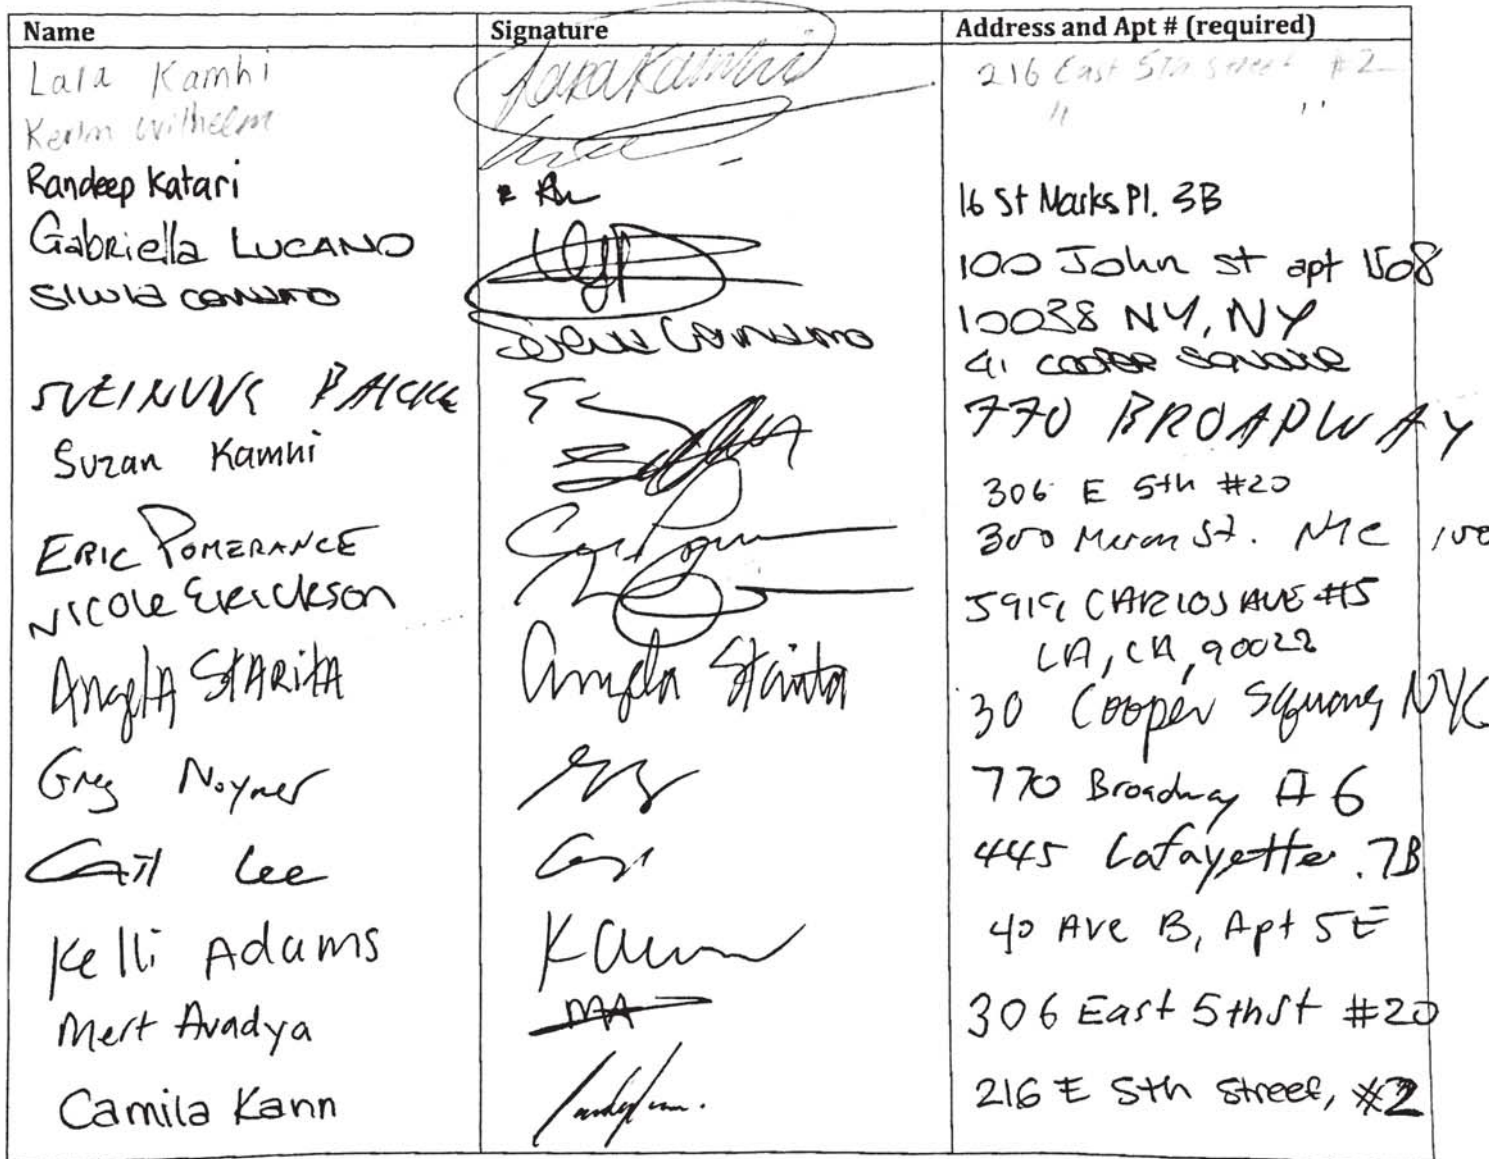 Name Signature Address and Apt # (required)
Lara Kamhi Lara Kamhi 216 East 5th Street #2
Wilhelm " "
Randeep Katari 16 St Marks Pl. 3B
Gabriella LUCANO 100 John st apt 1508
Silvia 10038 NY, NY
41 COOPER SQUARE
770 BROADWAY
Suzan Kamhi 306 E 5th #20
ERIC POMERANCE 300 St. NYC
NICOLE ERICKSON 5919 CARLOS AVE #5
LA, CA, 90028
Angela STARITA Angela Starita 30 Cooper Square NYC
Greg Noyner 770 Broadway # 6
Gail Lee 445 Lafayette 7B
Kelli Adams 40 Ave B, Apt 5E
Mert Avadya MA 306 East 5th St #20
Camila Kann 216 E 5th Street, #2